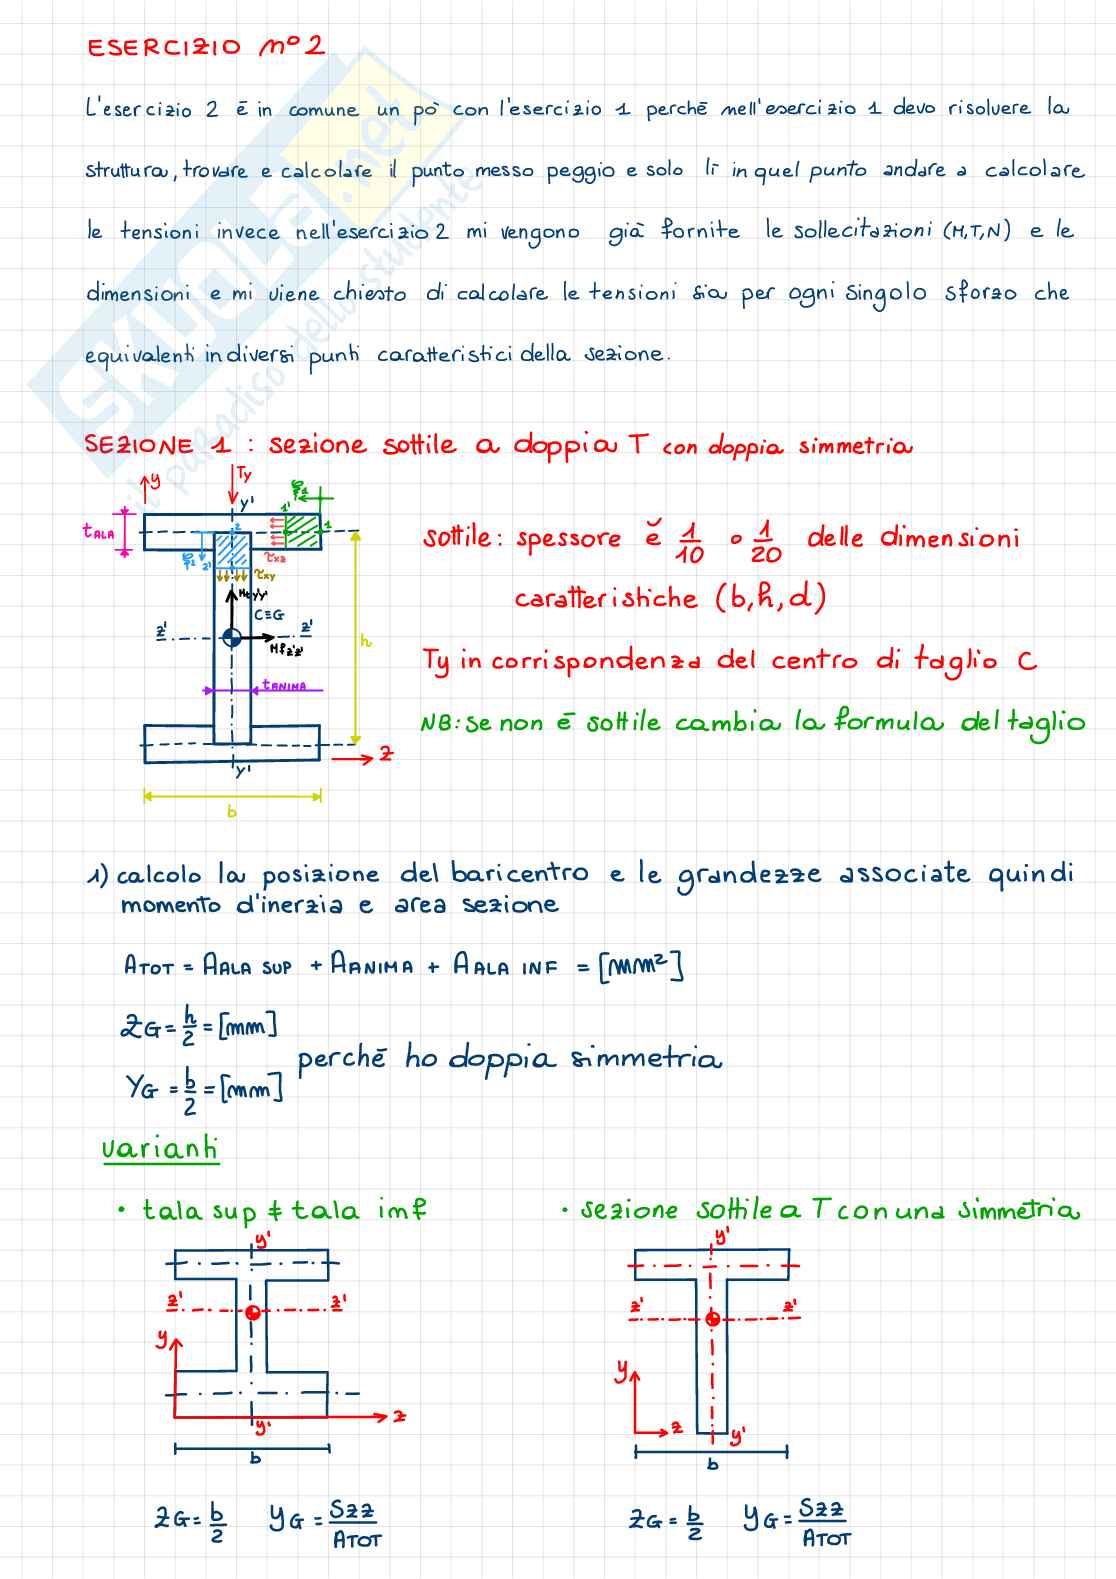 ESERCIZIO n° 2
L'esercizio 2 è in comune un pò con l'esercizio 1 perchè nell'esercizio 1 devo risolvere la
struttura, trovare e calcolare il punto messo peggio e solo lì in quel punto andare a calcolare
le tensioni invece nell'esercizio 2 mi vengono già fornite le sollecitazioni (M,T,N) e le
dimensioni e mi viene chiesto di calcolare le tensioni sia per ogni singolo sforzo che
equivalenti in diversi punti caratteristici della sezione.
SKUOLA.net
il paradiso dello studente
SEZIONE 1 : sezione sottile a doppia T con doppia simmetria
y
Ty
y'
ξ1
1'
1
tALA
2
ξ2
2'
τxz
τxy
Mfy'y'
C≡G
z'
z'
Mfz'z'
h
tANIMA
y'
z
b
sottile: spessore è 1/10 o 1/20 delle dimensioni
caratteristiche (b,h,d)
Ty in corrispondenza del centro di taglio C
NB: se non è sottile cambia la formula del taglio
1) calcolo la posizione del baricentro e le grandezze associate quindi
momento d'inerzia e area sezione
ATOT = AALA SUP + AANIMA + AALA INF = [mm²]
ZG = h/2 = [mm]
perchè ho doppia simmetria
YG = b/2 = [mm]
varianti
• tala sup ≠ tala inf
• sezione sottile a T con una simmetria
y'
z'
z'
y
z
y'
b
y'
z'
z'
y
z
y'
b
ZG = b/2 yG = Szz/ATOT
ZG = b/2 yG = Szz/ATOT